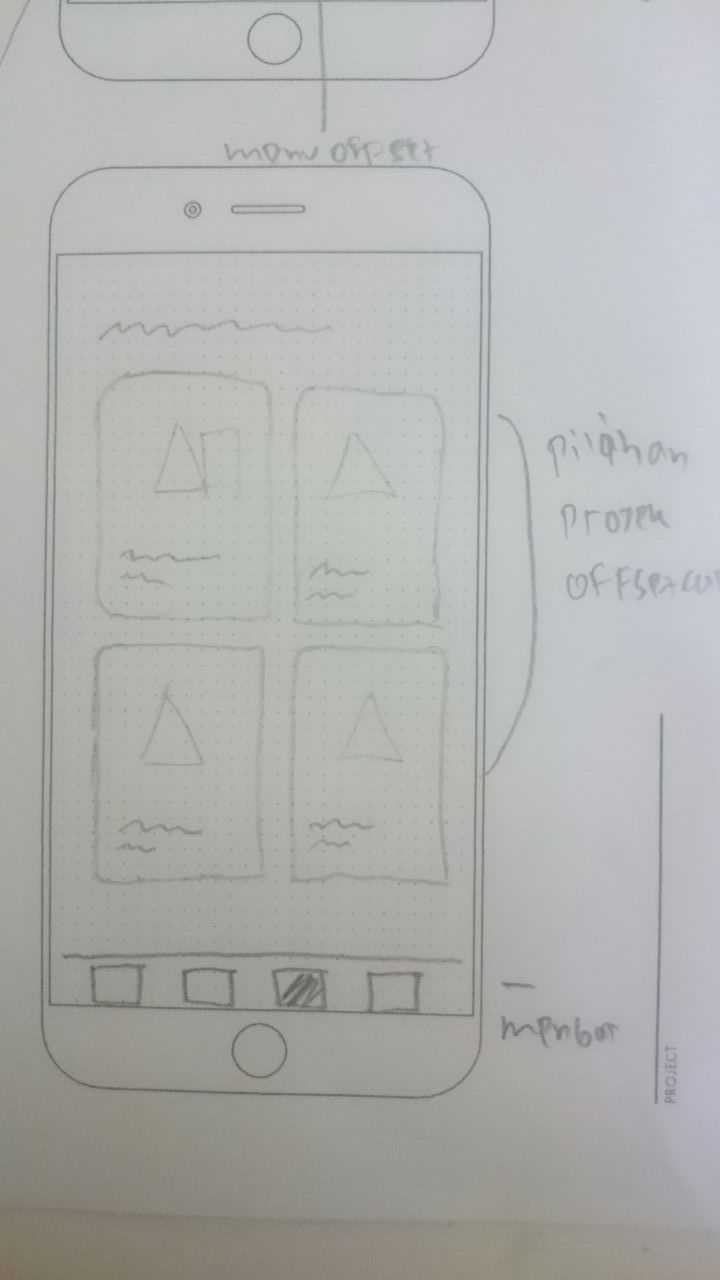 menu offset
pilihan
proyek
offset
menbar
PROJECT